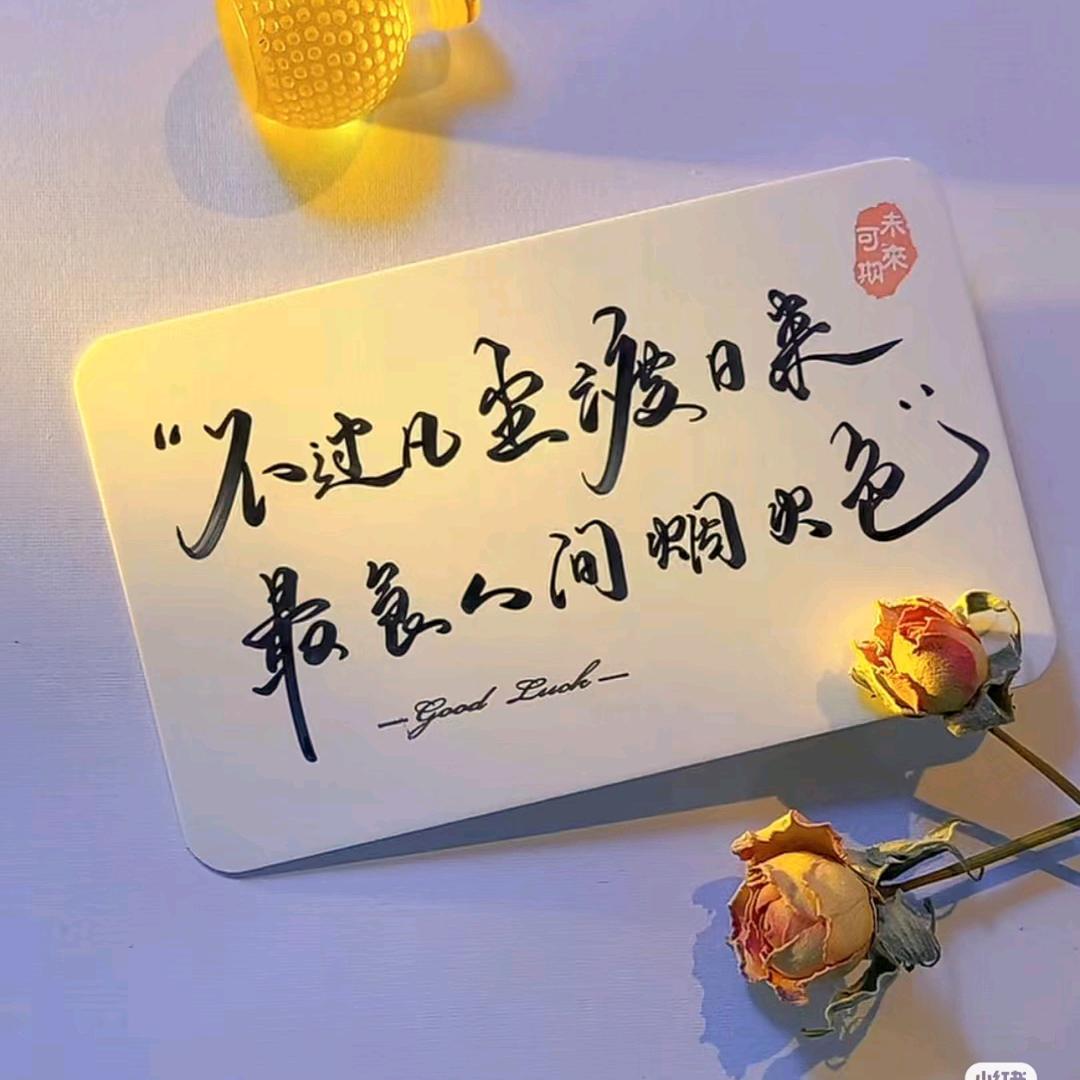 未來
可期
“不过凡尘渡日暮
最食人间烟火色”
—Good Luck—